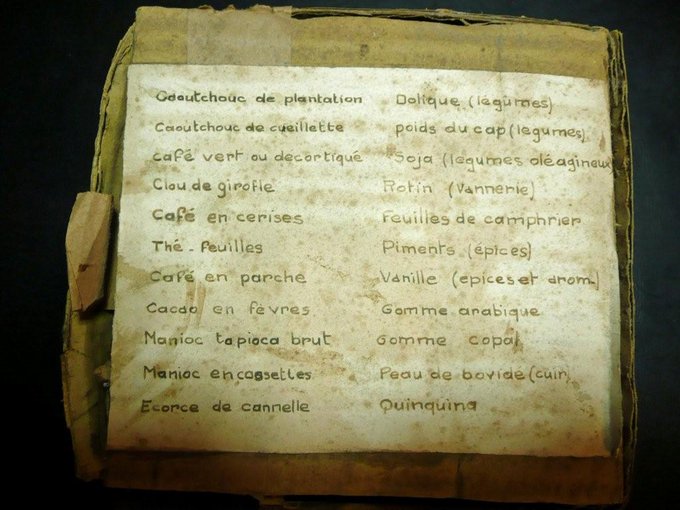 Caoutchouc de plantation
Caoutchouc de cueillette
Café vert ou décortiqué
Clou de girofle
Café en cerises
Thé - feuilles
Café en parche
Cacao en fèvres
Manioc tapioca brut
Manioc en cossettes
Ecorce de cannelle
Dolique (légumes)
poids du cap (légumes)
Soja (légumes oléagineux
Rotin (Vannerie)
Feuilles de camphrier
Piments (épices)
Vanille (épices et arom.)
Gomme arabique
Gomme copal
Peau de bovidé (cuir)
Quinquina